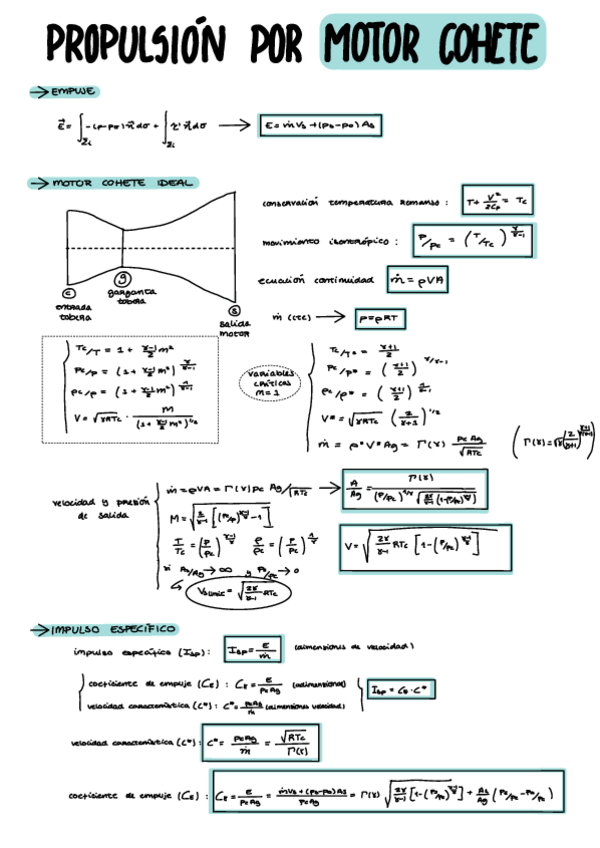 PROPULSIÓN POR MOTOR COHETE
→ EMPUJE
E⃗ = ∫Σi -(p-p0)n⃗dσ + ∫Σi τ'n⃗dσ → E = ṁVs + (ps-p0)As
→ MOTOR COHETE IDEAL
conservación temperatura remanso : T + V²/2Cp = Tc
movimiento isentrópico : P/Pc = (T/Tc)^(γ/γ-1)
ecuación continuidad ṁ = ρVA
ṁ (cte) → p = ρRT
c
entrada tobera
g
garganta tobera
s
salida motor
Tc/T = 1 + γ-1/2 M²
Pc/p = (1 + γ-1/2 M²)^(γ/γ-1)
ρc/ρ = (1 + γ-1/2 M²)^(1/γ-1)
V = √γRTc · M/(1 + γ-1/2 M²)^1/2
variables críticas M=1
Tc/T* = γ+1/2
Pc/p* = (γ+1/2)^(γ/γ-1)
ρc/ρ* = (γ+1/2)^(1/γ-1)
V* = √γRTc (2/γ+1)^1/2
ṁ = ρ* V* Ag = Γ(γ) PcAg/√RTc
(Γ(γ) = √γ(2/γ+1)^(γ+1/2(γ-1)))
velocidad y presión de salida
ṁ = ρVA = Γ(γ)pc Ag/√RTc → A/Ag = Γ(γ)/((P/Pc)^1/γ √(2γ/γ-1 (1-(P/Pc)^(γ-1/γ))))
M = √(2/γ-1 [(Pc/p)^(γ-1/γ) -1])
T/Tc = (P/Pc)^(γ-1/γ) ρ/ρc = (P/Pc)^(1/γ)
V = √(2γ/γ-1 RTc [1-(P/Pc)^(γ-1/γ)])
si As/Ag → ∞ y Ps/Pc → 0
↳ Vslímite = √(2γ/γ-1 RTc)
→ IMPULSO ESPECÍFICO
impulso específico (Isp) : Isp = E/ṁ (dimensiones de velocidad)
coeficiente de empuje (CE) : CE = E/PcAg (adimensional)
velocidad característica (C*) : C* = PcAg/ṁ (dimensiones velocidad)
Isp = CE · C*
velocidad característica (C*) : C* = PcAg/ṁ = √RTc/Γ(γ)
coeficiente de empuje (CE) : CE = E/PcAg = ṁVs + (ps-p0)As/PcAg = Γ(γ) √(2γ/γ-1 [1-(Ps/Pc)^(γ-1/γ)]) + As/Ag (Ps/Pc - P0/Pc)